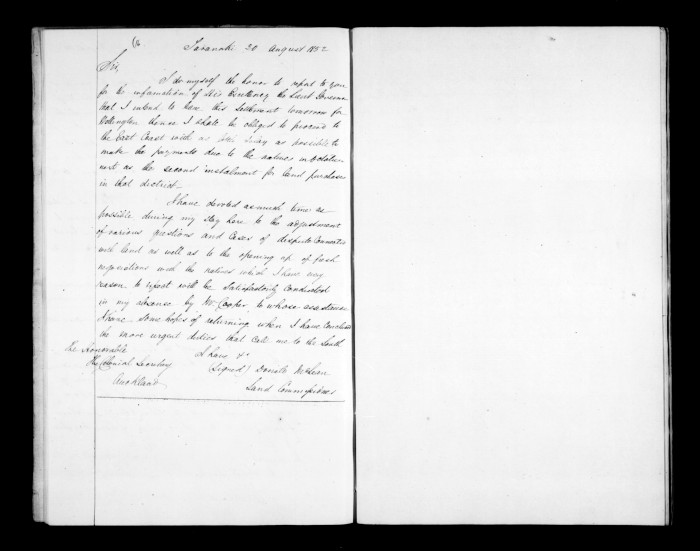 Taranaki 20 August 1852
Sir,
I do myself the honor to report to you
for the information of His Excellency the Lieut Governor
that I intend to leave this Settlement tomorrow for
Wellington thence I shall be obliged to proceed to
the East Coast with as little delay as possible to
make the payments due to the natives in October
next as the second instalment for land purchase
in that district_
I have devoted as much time as
possible during my stay here to the adjustment
of various questions and Cases of dispute Connected
with land as well as to the opening up of fresh
negociations with the natives which I have every
reason to report will be Satisfactorily Conducted
in my absence by Mr Cooper to whose assistance
I have some hopes of returning when I have Concluded
the more urgent duties that Call me to the South
I have &c
The Honorable
The Colonial Secretary
(Signed) Donald McLean
Auckland
Land Commissioner